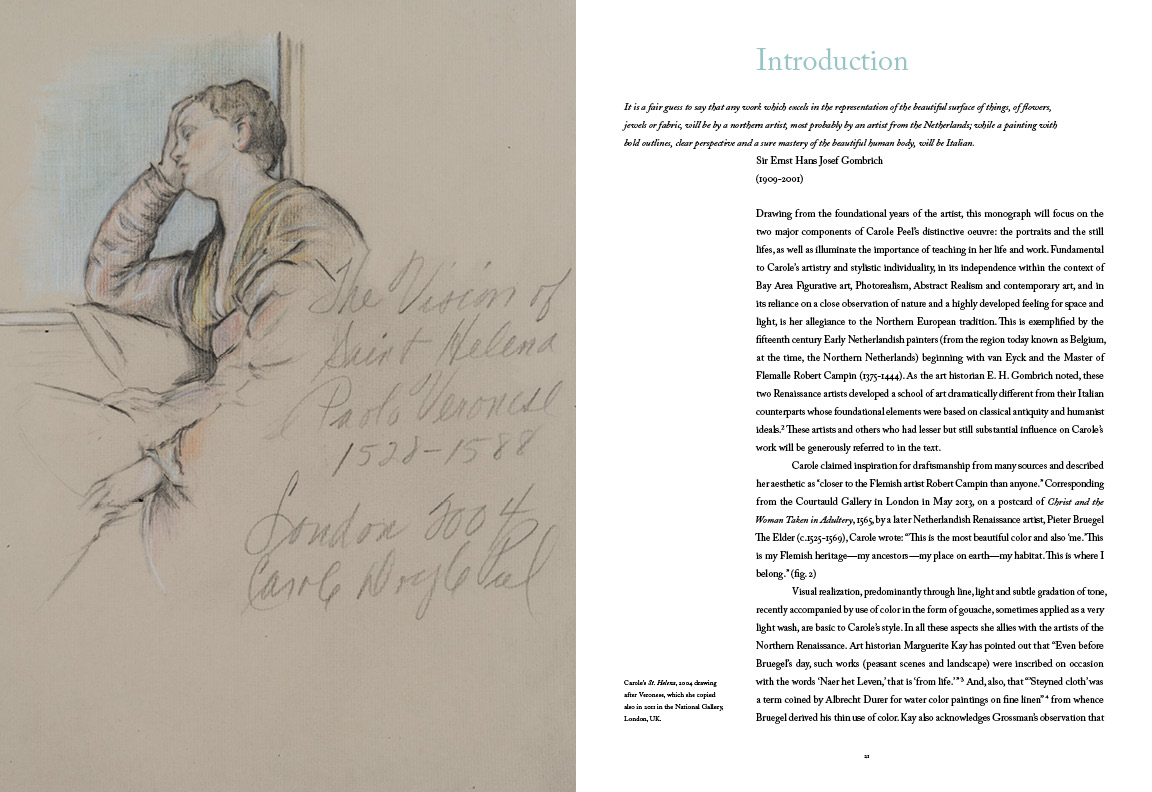 The Vision of
Saint Helena
Paolo Veronese
1528-1588
London 2004
Carole Doyle Peel
Introduction
It is a fair guess to say that any work which excels in the representation of the beautiful surface of things, of flowers,
jewels or fabric, will be by a northern artist, most probably by an artist from the Netherlands; while a painting with
bold outlines, clear perspective and a sure mastery of the beautiful human body, will be Italian.
Sir Ernst Hans Josef Gombrich
(1909-2001)
Drawing from the foundational years of the artist, this monograph will focus on the
two major components of Carole Peel's distinctive oeuvre: the portraits and the still
lifes, as well as illuminate the importance of teaching in her life and work. Fundamental
to Carole's artistry and stylistic individuality, in its independence within the context of
Bay Area Figurative art, Photorealism, Abstract Realism and contemporary art, and in
its reliance on a close observation of nature and a highly developed feeling for space and
light, is her allegiance to the Northern European tradition. This is exemplified by the
fifteenth century Early Netherlandish painters (from the region today known as Belgium,
at the time, the Northern Netherlands) beginning with van Eyck and the Master of
Flemalle Robert Campin (1375-1444). As the art historian E. H. Gombrich noted, these
two Renaissance artists developed a school of art dramatically different from their Italian
counterparts whose foundational elements were based on classical antiquity and humanist
ideals.² These artists and others who had lesser but still substantial influence on Carole's
work will be generously referred to in the text.
Carole claimed inspiration for draftsmanship from many sources and described
her aesthetic as "closer to the Flemish artist Robert Campin than anyone." Corresponding
from the Courtauld Gallery in London in May 2013, on a postcard of Christ and the
Woman Taken in Adultery, 1565, by a later Netherlandish Renaissance artist, Pieter Bruegel
The Elder (c.1525-1569), Carole wrote: "This is the most beautiful color and also 'me.' This
is my Flemish heritage—my ancestors—my place on earth—my habitat. This is where I
belong." (fig. 2)
Visual realization, predominantly through line, light and subtle gradation of tone,
recently accompanied by use of color in the form of gouache, sometimes applied as a very
light wash, are basic to Carole's style. In all these aspects she allies with the artists of the
Northern Renaissance. Art historian Marguerite Kay has pointed out that "Even before
Bruegel's day, such works (peasant scenes and landscape) were inscribed on occasion
with the words 'Naer het Leven,' that is 'from life.'"³ And, also, that "'Steyned cloth' was
a term coined by Albrecht Durer for water color paintings on fine linen"⁴ from whence
Bruegel derived his thin use of color. Kay also acknowledges Grossman's observation that
Carole's St. Helena, 2004 drawing
after Veronese, which she copied
also in 2011 in the National Gallery,
London, UK.
21